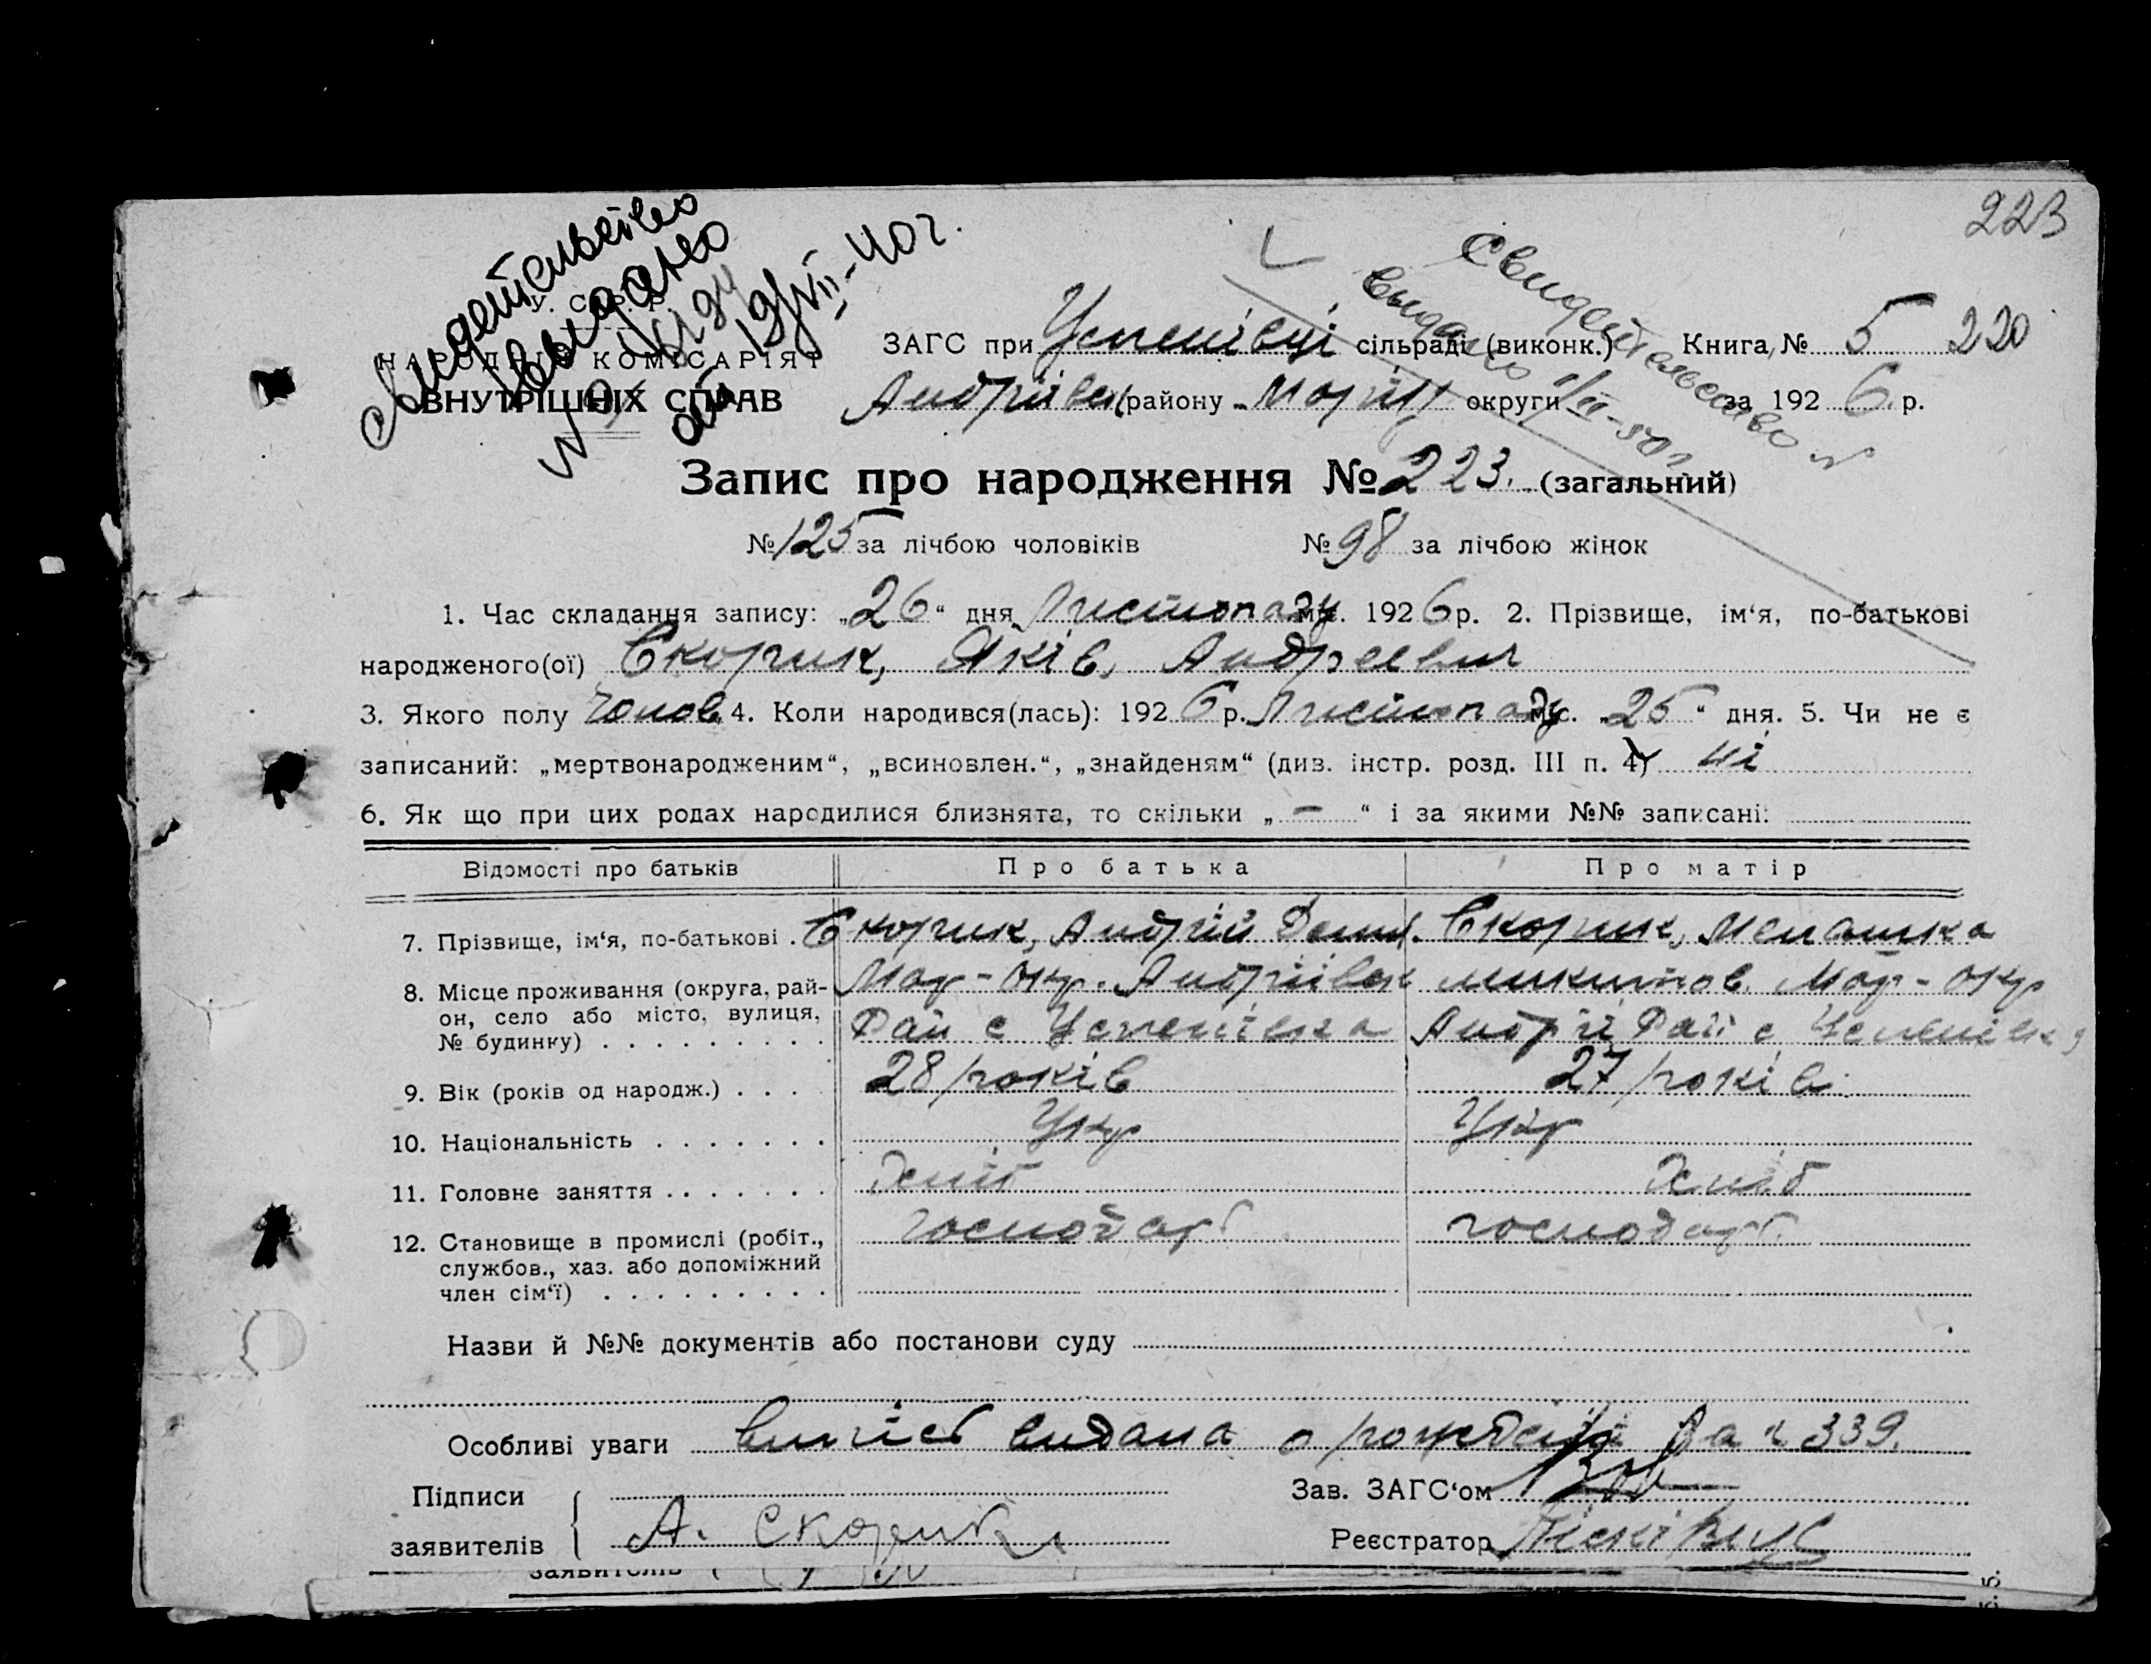 223
Свидетельство
выдано
от 19/VII-40 г.
Свидетельство №
выдано
У. С. Р. Р.
НАРОДНІЙ КОМІСАРІЯТ
ВНУТРІШНІХ СПРАВ
ЗАГС при Успенівці сільраді (виконк.) Книга № 5 220
Андріївск району „ Маріуп округи за 192 6 р.
Запис про народження № 223. (загальний)
№ 125 за лічбою чоловіків № 98 за лічбою жінок
1. Час складання запису: „ 26 “ дня Листопаду м. 192 6 р. 2. Прізвище, ім‘я, по-батькові
народженого(ої) Скорик, Яків, Андреевич
3. Якого полу Чолов. 4. Коли народився(лась): 192 6 р. Листопаду міс. „ 25 “ дня. 5. Чи не є
записаний: „мертвонародженим“, „всиновлен.“, „знайденям“ (див. інстр. розд. III п. 4) ні
6. Як що при цих родах народилися близнята, то скільки „ – “ і за якими №№ записані:
Відомості про батьків Про батька Про матір
7. Прізвище, ім‘я, по-батькові . Скорик, Андрій Демид. Скорик, Мелашка
8. Місце проживання (округа, рай- Мар-окр. Андріївск Микитов. Мар-окр
он, село або місто, вулиця, Рай с Успенівка Андрії Рай с Успенівк
№ будинку) . . . . . . . . .
9. Вік (років од народж.) . . . . 28 років 27 років
10. Національність . . . . . . . Укр Укр
11. Головне заняття . . . . . . . Хліб Хліб
12. Становище в промислі (робіт., господар. господар.
службов., хаз. або допоміжний
член сім‘ї) . . . . . . . . .
Назви й №№ документів або постанови суду
Особливі уваги випись видана о рождении за № 339.
Підписи Зав. ЗАГС‘ом
заявителів А. Скорик Реєстратор
заявителів